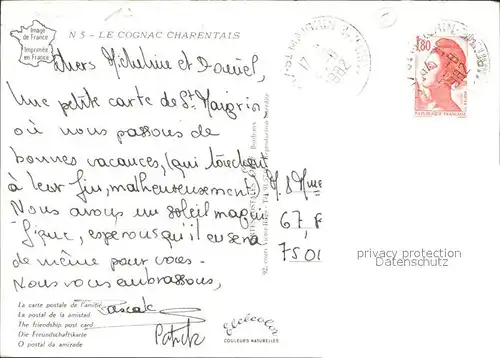 N 5 - LE COGNAC CHARENTAIS
Image
de France
Imprimée
en France
Chers Micheline et Daniel,
Une petite carte de St Maigrin,
où nous passons de
bonnes vacances, (qui touchent
à leur fin, malheureusement)
Nous avons un soleil magni
fique, esperons qu'il en sera
de même pour vous -
Nous vous embrassons,
Pascale
Patrick
La carte postale de l'amitié
La postal de la amistad
The friendship post card
Die Freundschaftskarte
O postal da amizade
COULEURS NATURELLES
1982
1,80
REPUBLIQUE FRANCAISE
M. & Mme
67,
7501
privacy protection
Datenschutz